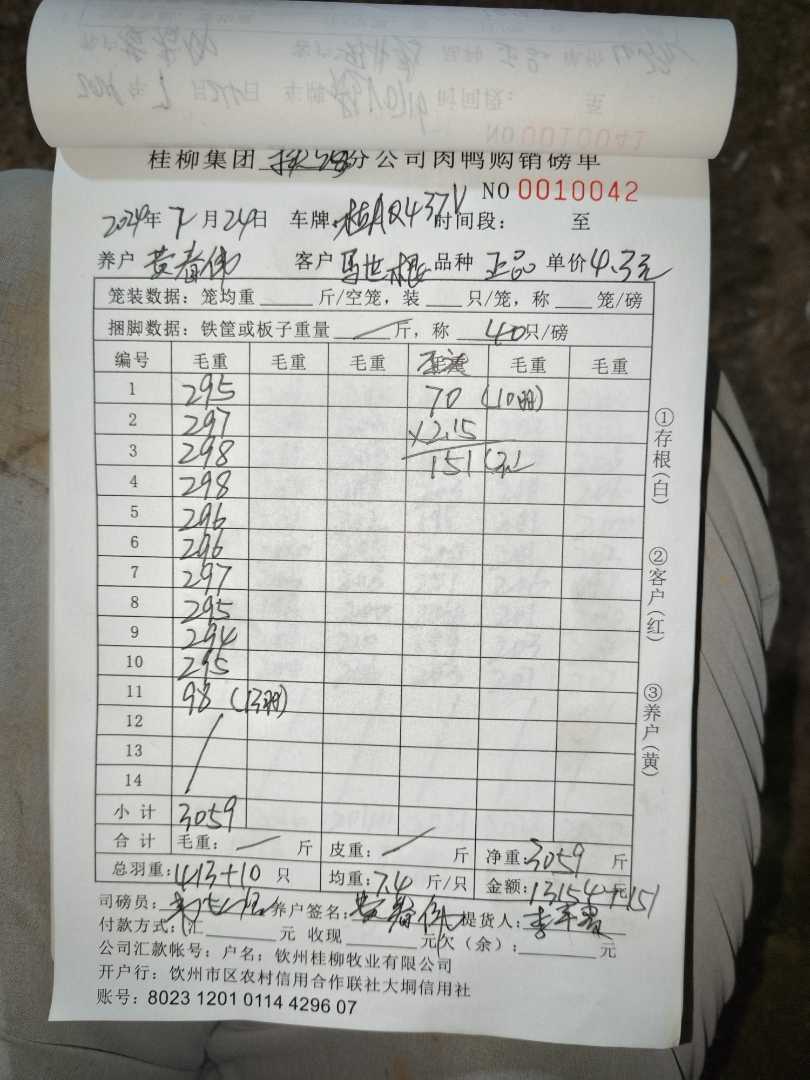 NO 0010041
桂柳集团 分公司肉鸭购销磅单
NO 0010042
2024年7月24日 车牌:桂AQ437V 时间段: 至
养户 黄春伟 客户 马世根 品种 正品 单价4.3元
笼装数据: 笼均重 斤/空笼, 装 只/笼, 称 笼/磅
捆脚数据: 铁筐或板子重量 / 斤, 称 40只/磅
编号 毛重 毛重 毛重 毛重 毛重
1 295 70 (10羽)
2 297 ×2.15
3 298 151
4 298
5 296
6 296
7 297
8 295
9 294
10 295
11 98 (13羽)
12
13
14
小计 3059
合计 毛重: / 斤 皮重: / 斤 净重:3059 斤
总羽重:413+10 只 均重:7.4 斤/只 金额:13154+151 元
司磅员: 养户签名:黄春伟 提货人:
付款方式:汇 元 收现 元欠(余): 元
公司汇款帐号: 户名: 钦州桂柳牧业有限公司
开户行: 钦州市区农村信用合作联社大垌信用社
账号: 8023 1201 0114 4296 07
①存根(白)
②客户(红)
③养户(黄)